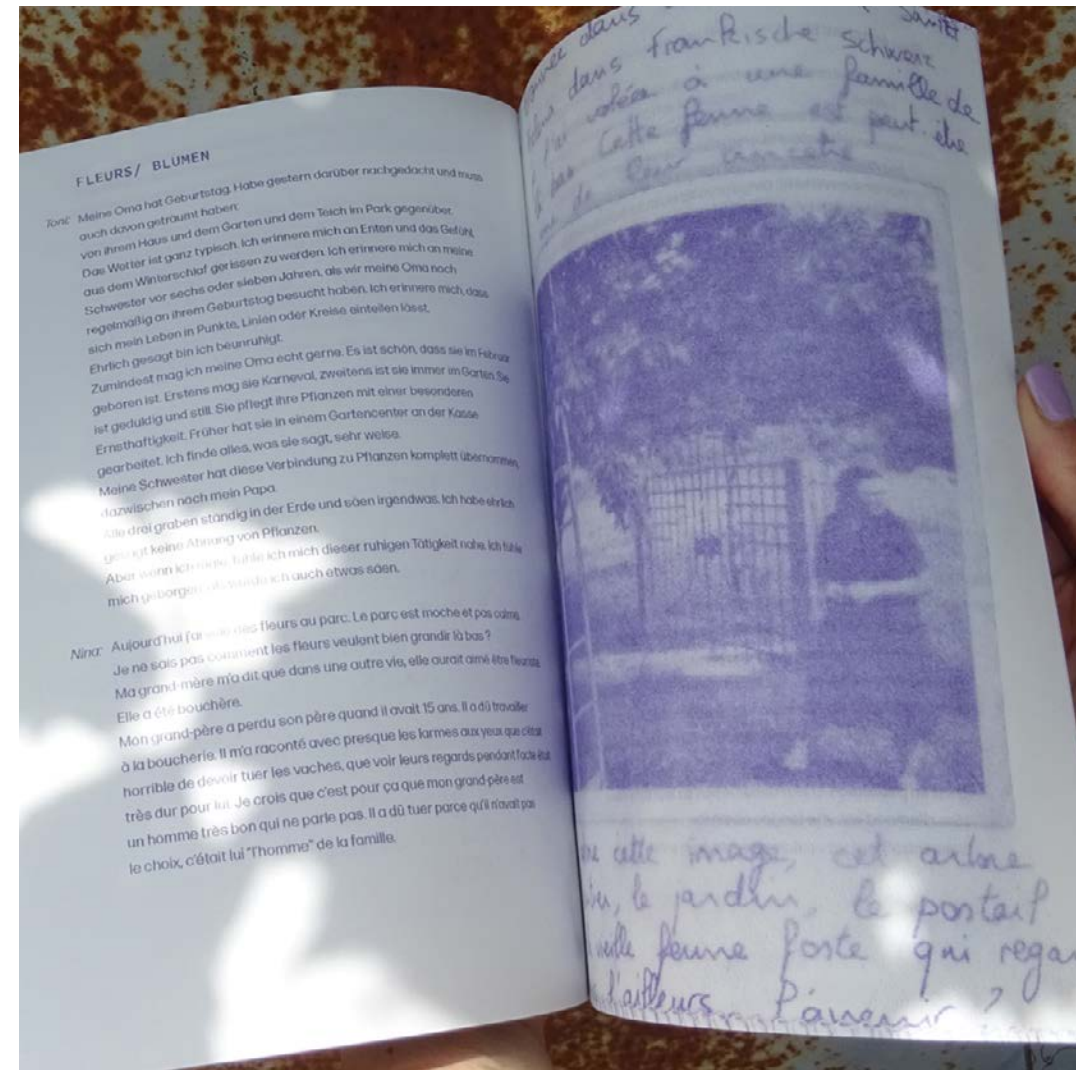 FLEURS/ BLUMEN
Toni: Meine Oma hat Geburtstag. Habe gestern darüber nachgedacht und muss
auch davon geträumt haben:
von ihrem Haus und dem Garten und dem Teich im Park gegenüber.
Das Wetter ist ganz typisch. Ich erinnere mich an Enten und das Gefühl,
aus dem Winterschlaf gerissen zu werden. Ich erinnere mich an meine
Schwester vor sechs oder sieben Jahren, als wir meine Oma noch
regelmäßig an ihrem Geburtstag besucht haben. Ich erinnere mich, dass
sich mein Leben in Punkte, Linien oder Kreise einteilen lässt.
Ehrlich gesagt bin ich beunruhigt.
Zumindest mag ich meine Oma echt gerne. Es ist schön, dass sie im Februar
geboren ist. Erstens mag sie Karneval, zweitens ist sie immer im Garten. Sie
ist geduldig und still. Sie pflegt ihre Pflanzen mit einer besonderen
Ernsthaftigkeit. Früher hat sie in einem Gartencenter an der Kasse
gearbeitet. Ich finde alles, was sie sagt, sehr weise.
Meine Schwester hat diese Verbindung zu Pflanzen komplett übernommen,
dazwischen noch mein Papa.
Alle drei graben ständig in der Erde und säen irgendwas. Ich habe ehrlich
gesagt keine Ahnung von Pflanzen.
Aber wenn ich fühle ich mich dieser ruhigen Tätigkeit nahe. Ich fühle
mich geborgen, als würde ich auch etwas säen.
Nina: Aujourd'hui j'ai vu des fleurs au parc. Le parc est moche et pas calme.
Je ne sais pas comment les fleurs veulent bien grandir là bas ?
Ma grand-mère m'a dit que dans une autre vie, elle aurait aimé être fleuriste.
Elle a été bouchère.
Mon grand-père a perdu son père quand il avait 15 ans. Il a dû travailler
à la boucherie. Il m'a raconté avec presque les larmes aux yeux que c'était
horrible de devoir tuer les vaches, que voir leurs regards pendant l'acte était
très dur pour lui. Je crois que c'est pour ça que mon grand-père est
un homme très bon qui ne parle pas. Il a dû tuer parce qu'il n'avait pas
le choix, c'était lui "l'homme" de la famille.
dans
dans Frankische Schweiz
volée à une famille de
bas Cette femme est peut être
de leur ancêtre
cette image, cet arbre
le jardin, le portail
vieille femme forte qui regar
d'ailleurs l'avenir ?